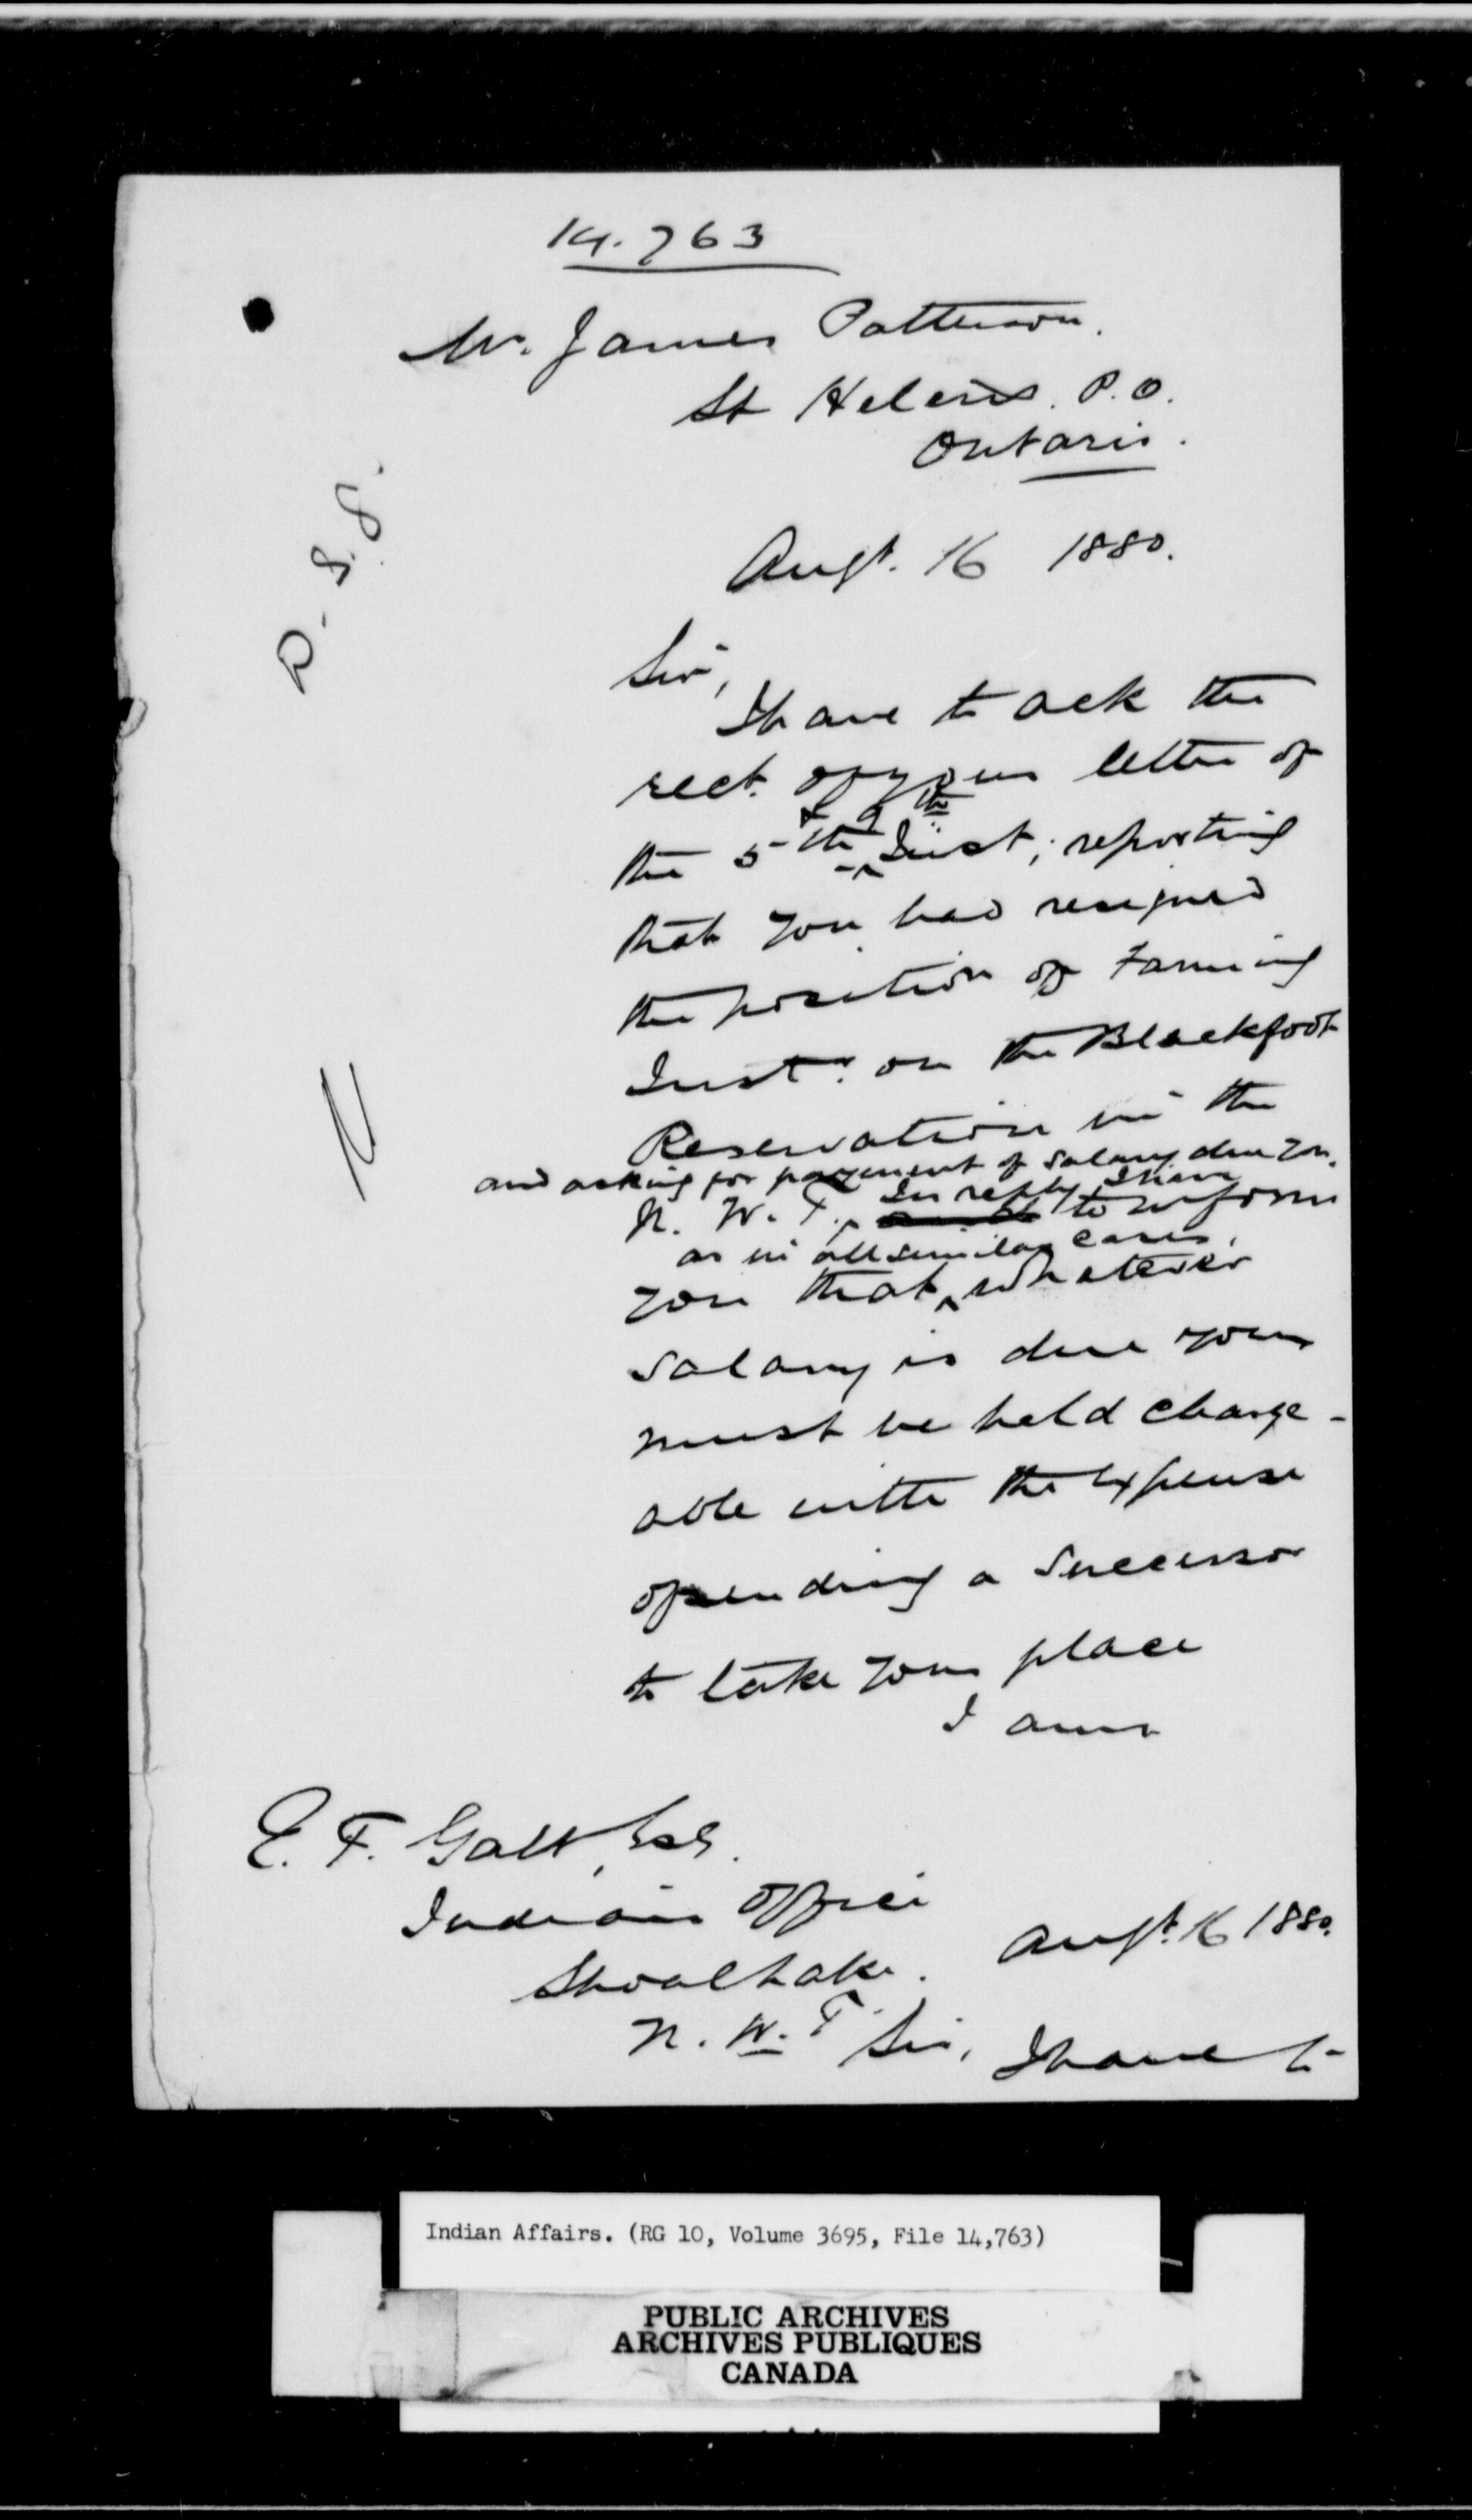 14.763
Mr. James Patterson.
St Helens. P.O.
Ontario.
D. S. G.
Augt. 16 1880.
Sir,
I have to ack the
rect. of your letter of
& 9th
the 5th Inst, reporting
that you had resigned
the position of Farming
Instr. on the Blackfoot
Reservation in the
and asking for payement of salary due you.
In reply I have
N. W. T. to inform
as in all similar cases,
you that whatever
salary is due you
must be held charge-
able with the expense
of sending a successor
to take your place
I am
E. F. Galt, Esq.
Indian Office
Augt. 16 1880.
Shoal Lake.
N. W. T. Sir, I have to
Indian Affairs. (RG 10, Volume 3695, File 14,763)
PUBLIC ARCHIVES
ARCHIVES PUBLIQUES
CANADA